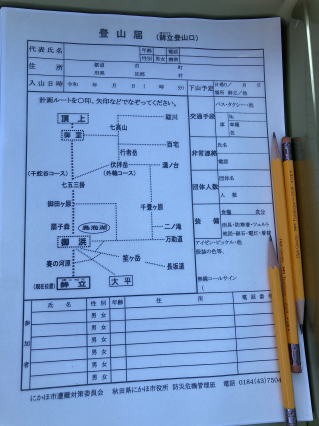 登山届 (鉾立登山口)
代表氏名 年齢 電話
性別 男女
住所 都道 市 町
府県 区郡 村
入山日時 令和 年 月 日 ( 時 分) 下山予定
計画ルートを○印、矢印などでなぞってください。
交通手段 バス・タクシー・他
頂上
御室
七高山
猿川
百宅
行者岳
伏拝岳
湯ノ台
(千蛇谷コース)
(外輪コース)
七五三掛
千畳ヶ原
御田ヶ原
扇子森
鳥海湖
二ノ滝
御浜
万助道
笙ヶ岳
賽の河原
長坂道
(現在位置)
鉾立
大平
非常連絡 氏名
電話
団体人数 団体名
人数
装備 食糧 食分
雨具・防寒着・ツェルト
アイゼン・ピッケル・他
無線コールサイン
(
参加者
氏名 性別 年齢 住所 電話番号
男 女
男 女
男 女
男 女
男 女
男 女
にかほ市遭難対策委員会 秋田県にかほ市役所 防災危機管理班 電話 0184(43)7504